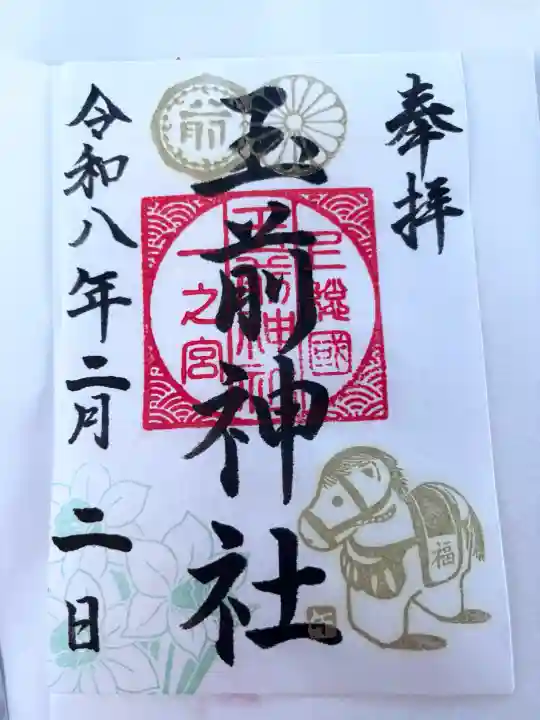 奉拝
上總國
玉前神社
一之宮
玉前神社
前
令和八年二月二日
福
午